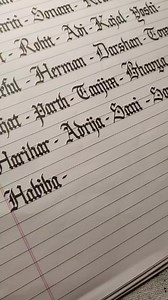 Sonam -
- Rohit - Avi - Kajal - Yoshi
- Herman - Darshan -
- Parth - Tanjim - Bhavya
Harihar - Adrija - Sani -
Habiba -